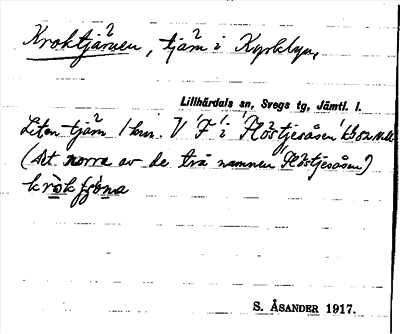 Kroktjärnen, tjärn i Kyrkbyn,
Lillhärdals sn, Svegs tg, Jämtl. l.
Liten tjärn 1 km. V 'F' i 'Flöstjesåsen'
(Det norra av de två namnen 'Flöstjesåsen')
kròkfjòna
S. ÅSANDER 1917.